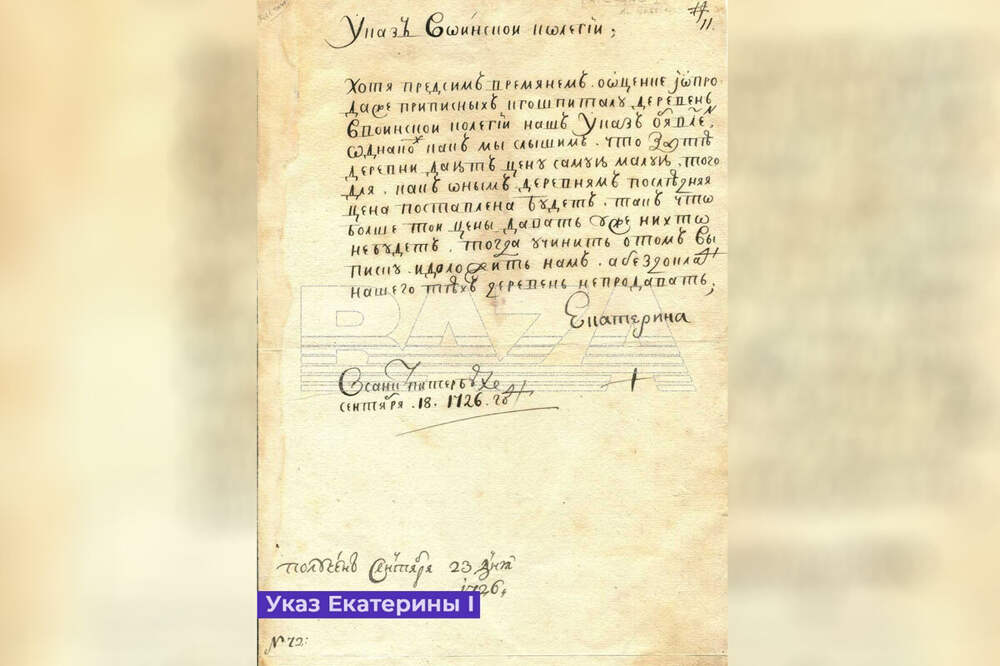 11
Указъ Воинской колегiи;
Хотя предсимъ времянемъ оѡценке iѡпро
даже приписныхъ кгошпиталу деревень
Своинской колегiи нашъ Указъ
ѡднако какъ мы слышимъ. что затѣ
деревни даютъ цену самую малую. того
для. какъ онымъ деревнямъ послѣдняя
цена поставлена будетъ. такъ что
болше тои цены давать уже никтѡ
небудетъ. тогда учинить отомъ вы
писку. идоложить намъ. абездокла
нашего тѣхъ деревень непродавать;
Екатерина
Всанктъпитербурхе
сентября .18. 1726. году
BAZA
получѣнъ Сентября 23 дня
1726
Указ Екатерины I
№ 72: